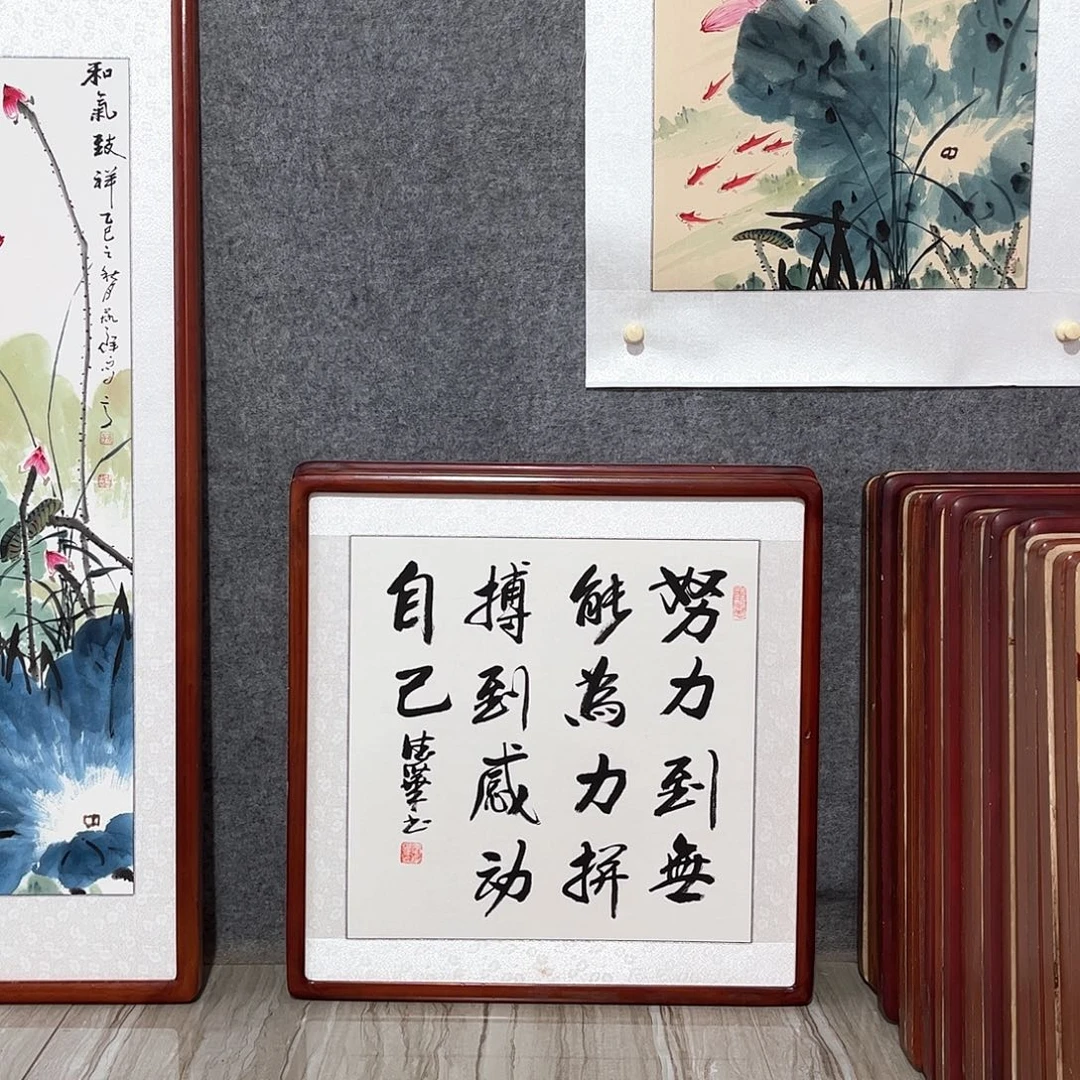 努力到無
能為力拼
搏到感动
自己
德華书
和氣致祥
乙巳之秋月